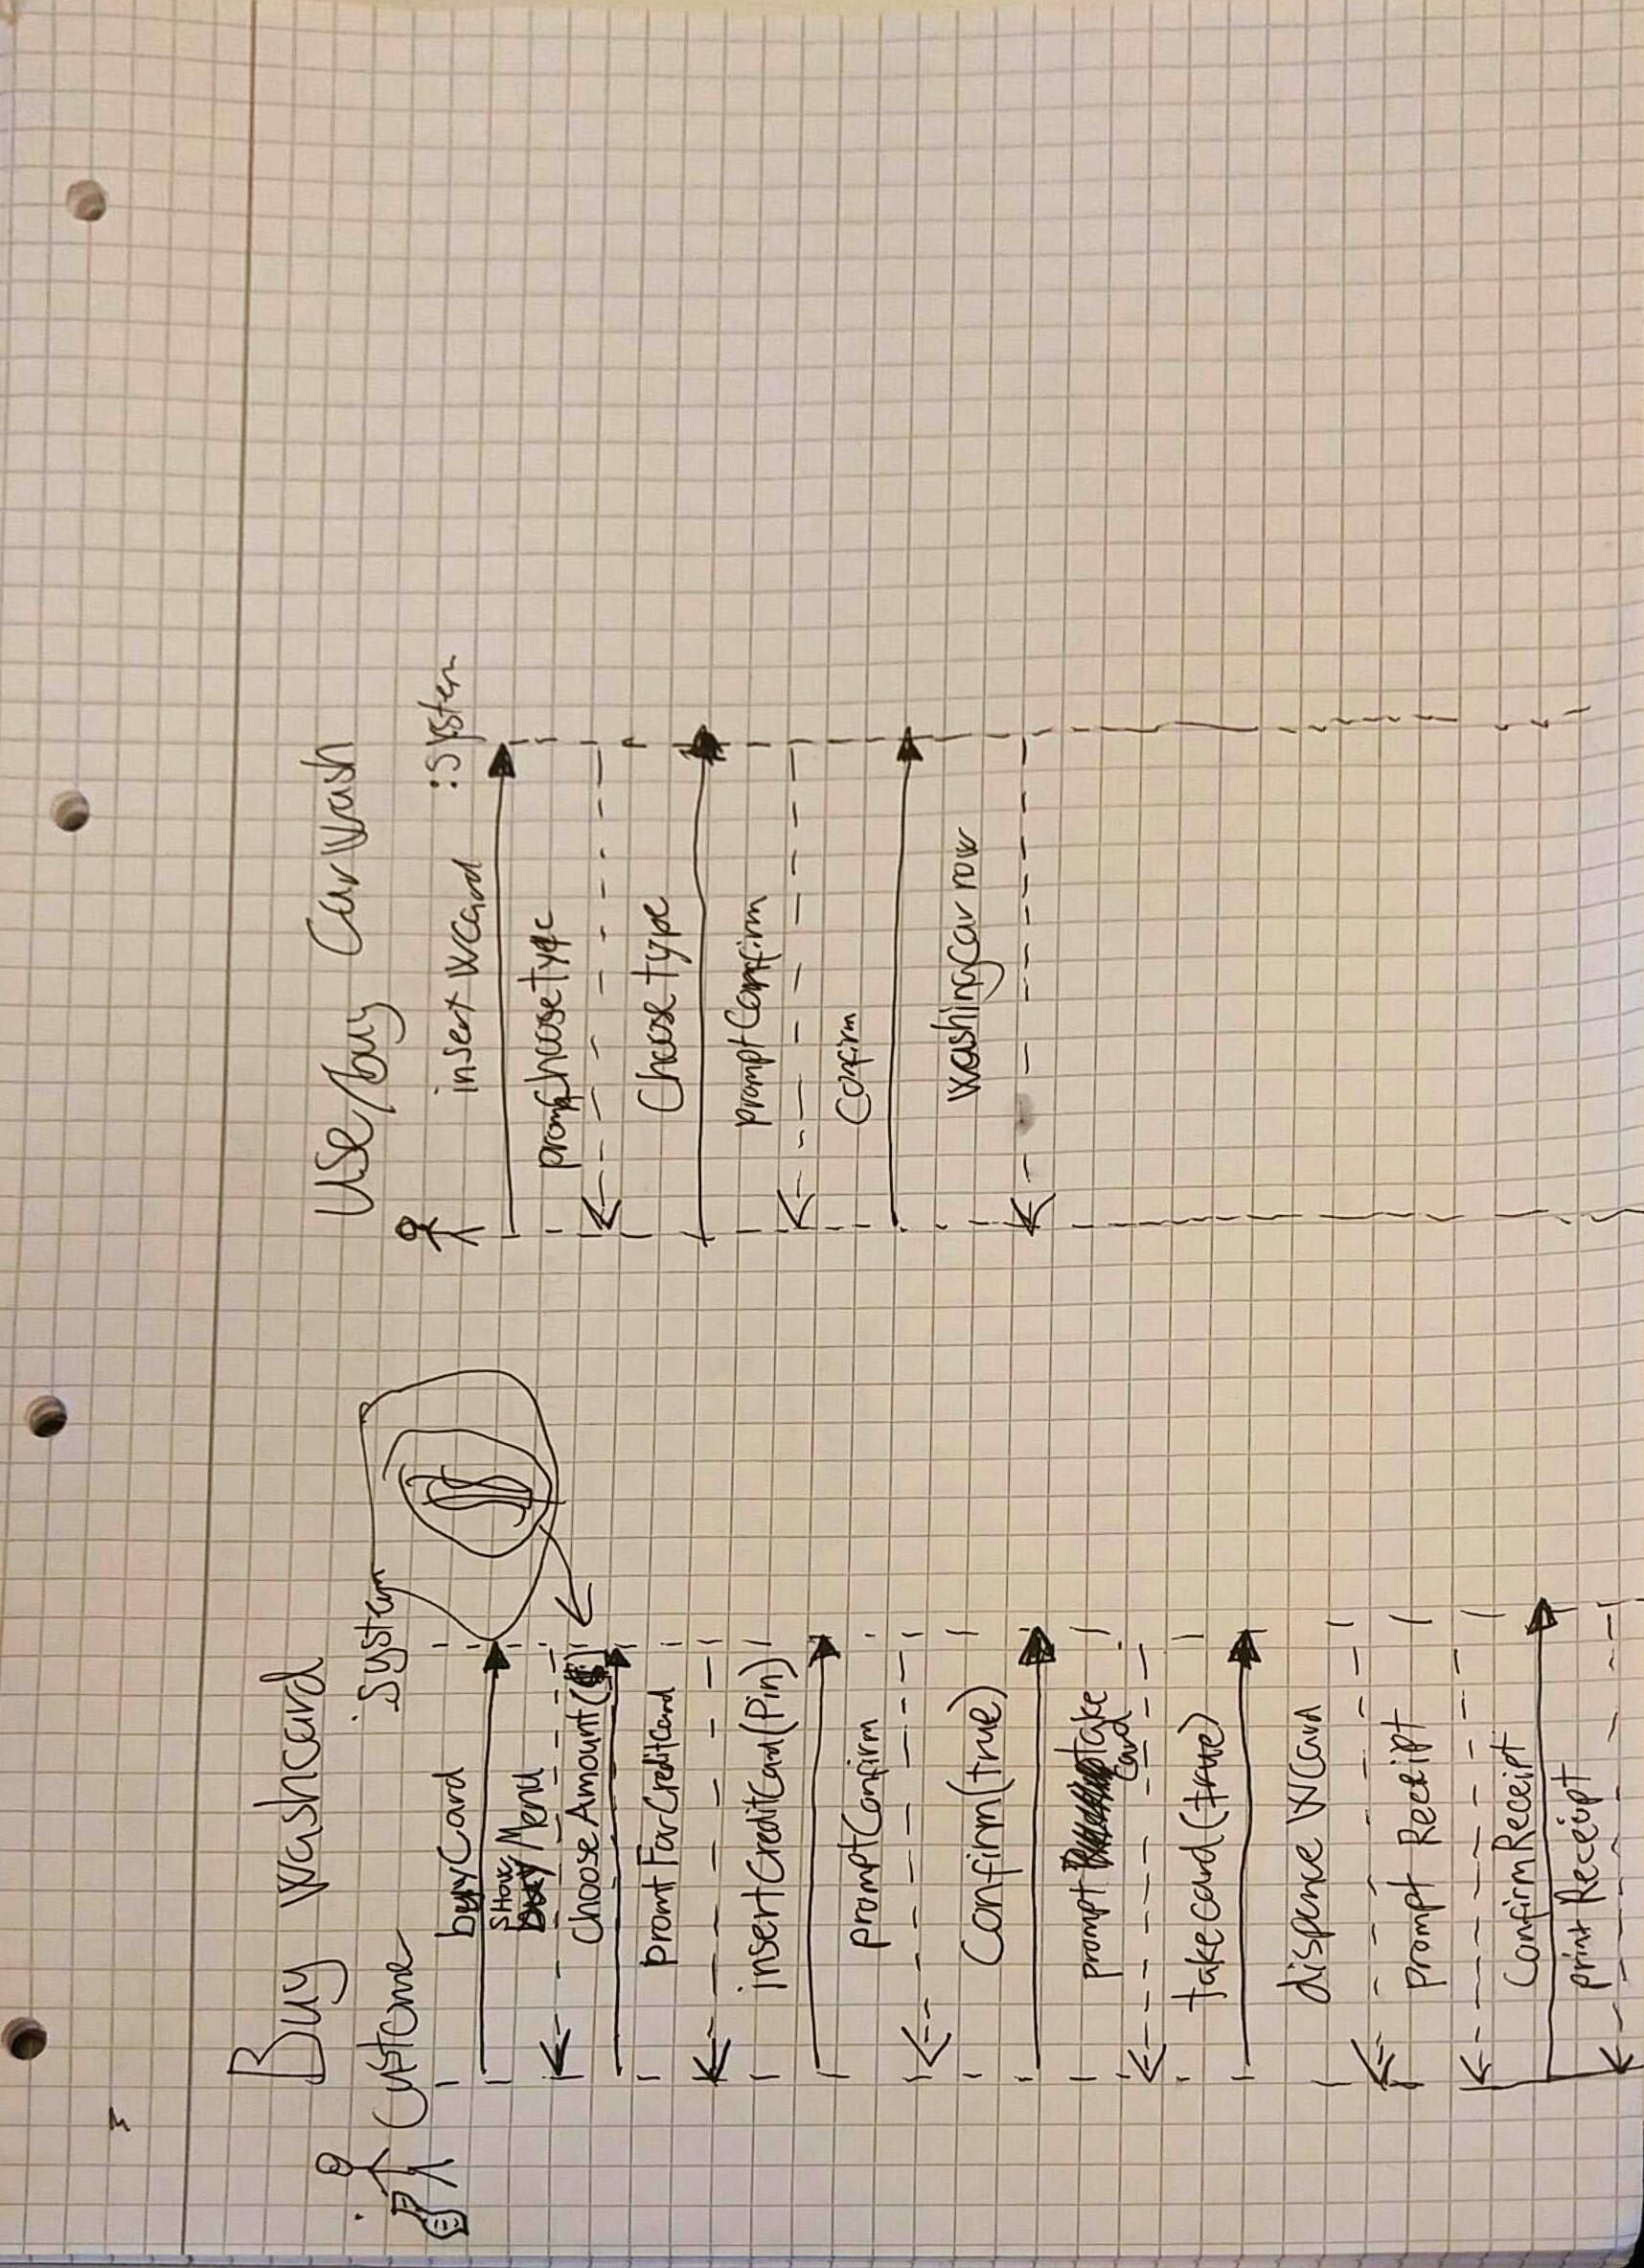 Buy washcard
Custome
:System
buyCard
SHOW Menu
$
ChooseAmount($)
promtForCreditCard
insertCreditCard(Pin)
promptConfirm
Confirm(true)
prompt take
card
takecard(true)
dispence WCard
prompt Receipt
ConfirmReceipt
print Receipt
Use/buy CarWash
:System
insert WCard
prompChoosetype
Choose type
promptConfirm
Confirm
washingcar now